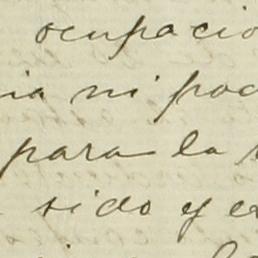 ocupacio
ia ni pod
para la
sido y e